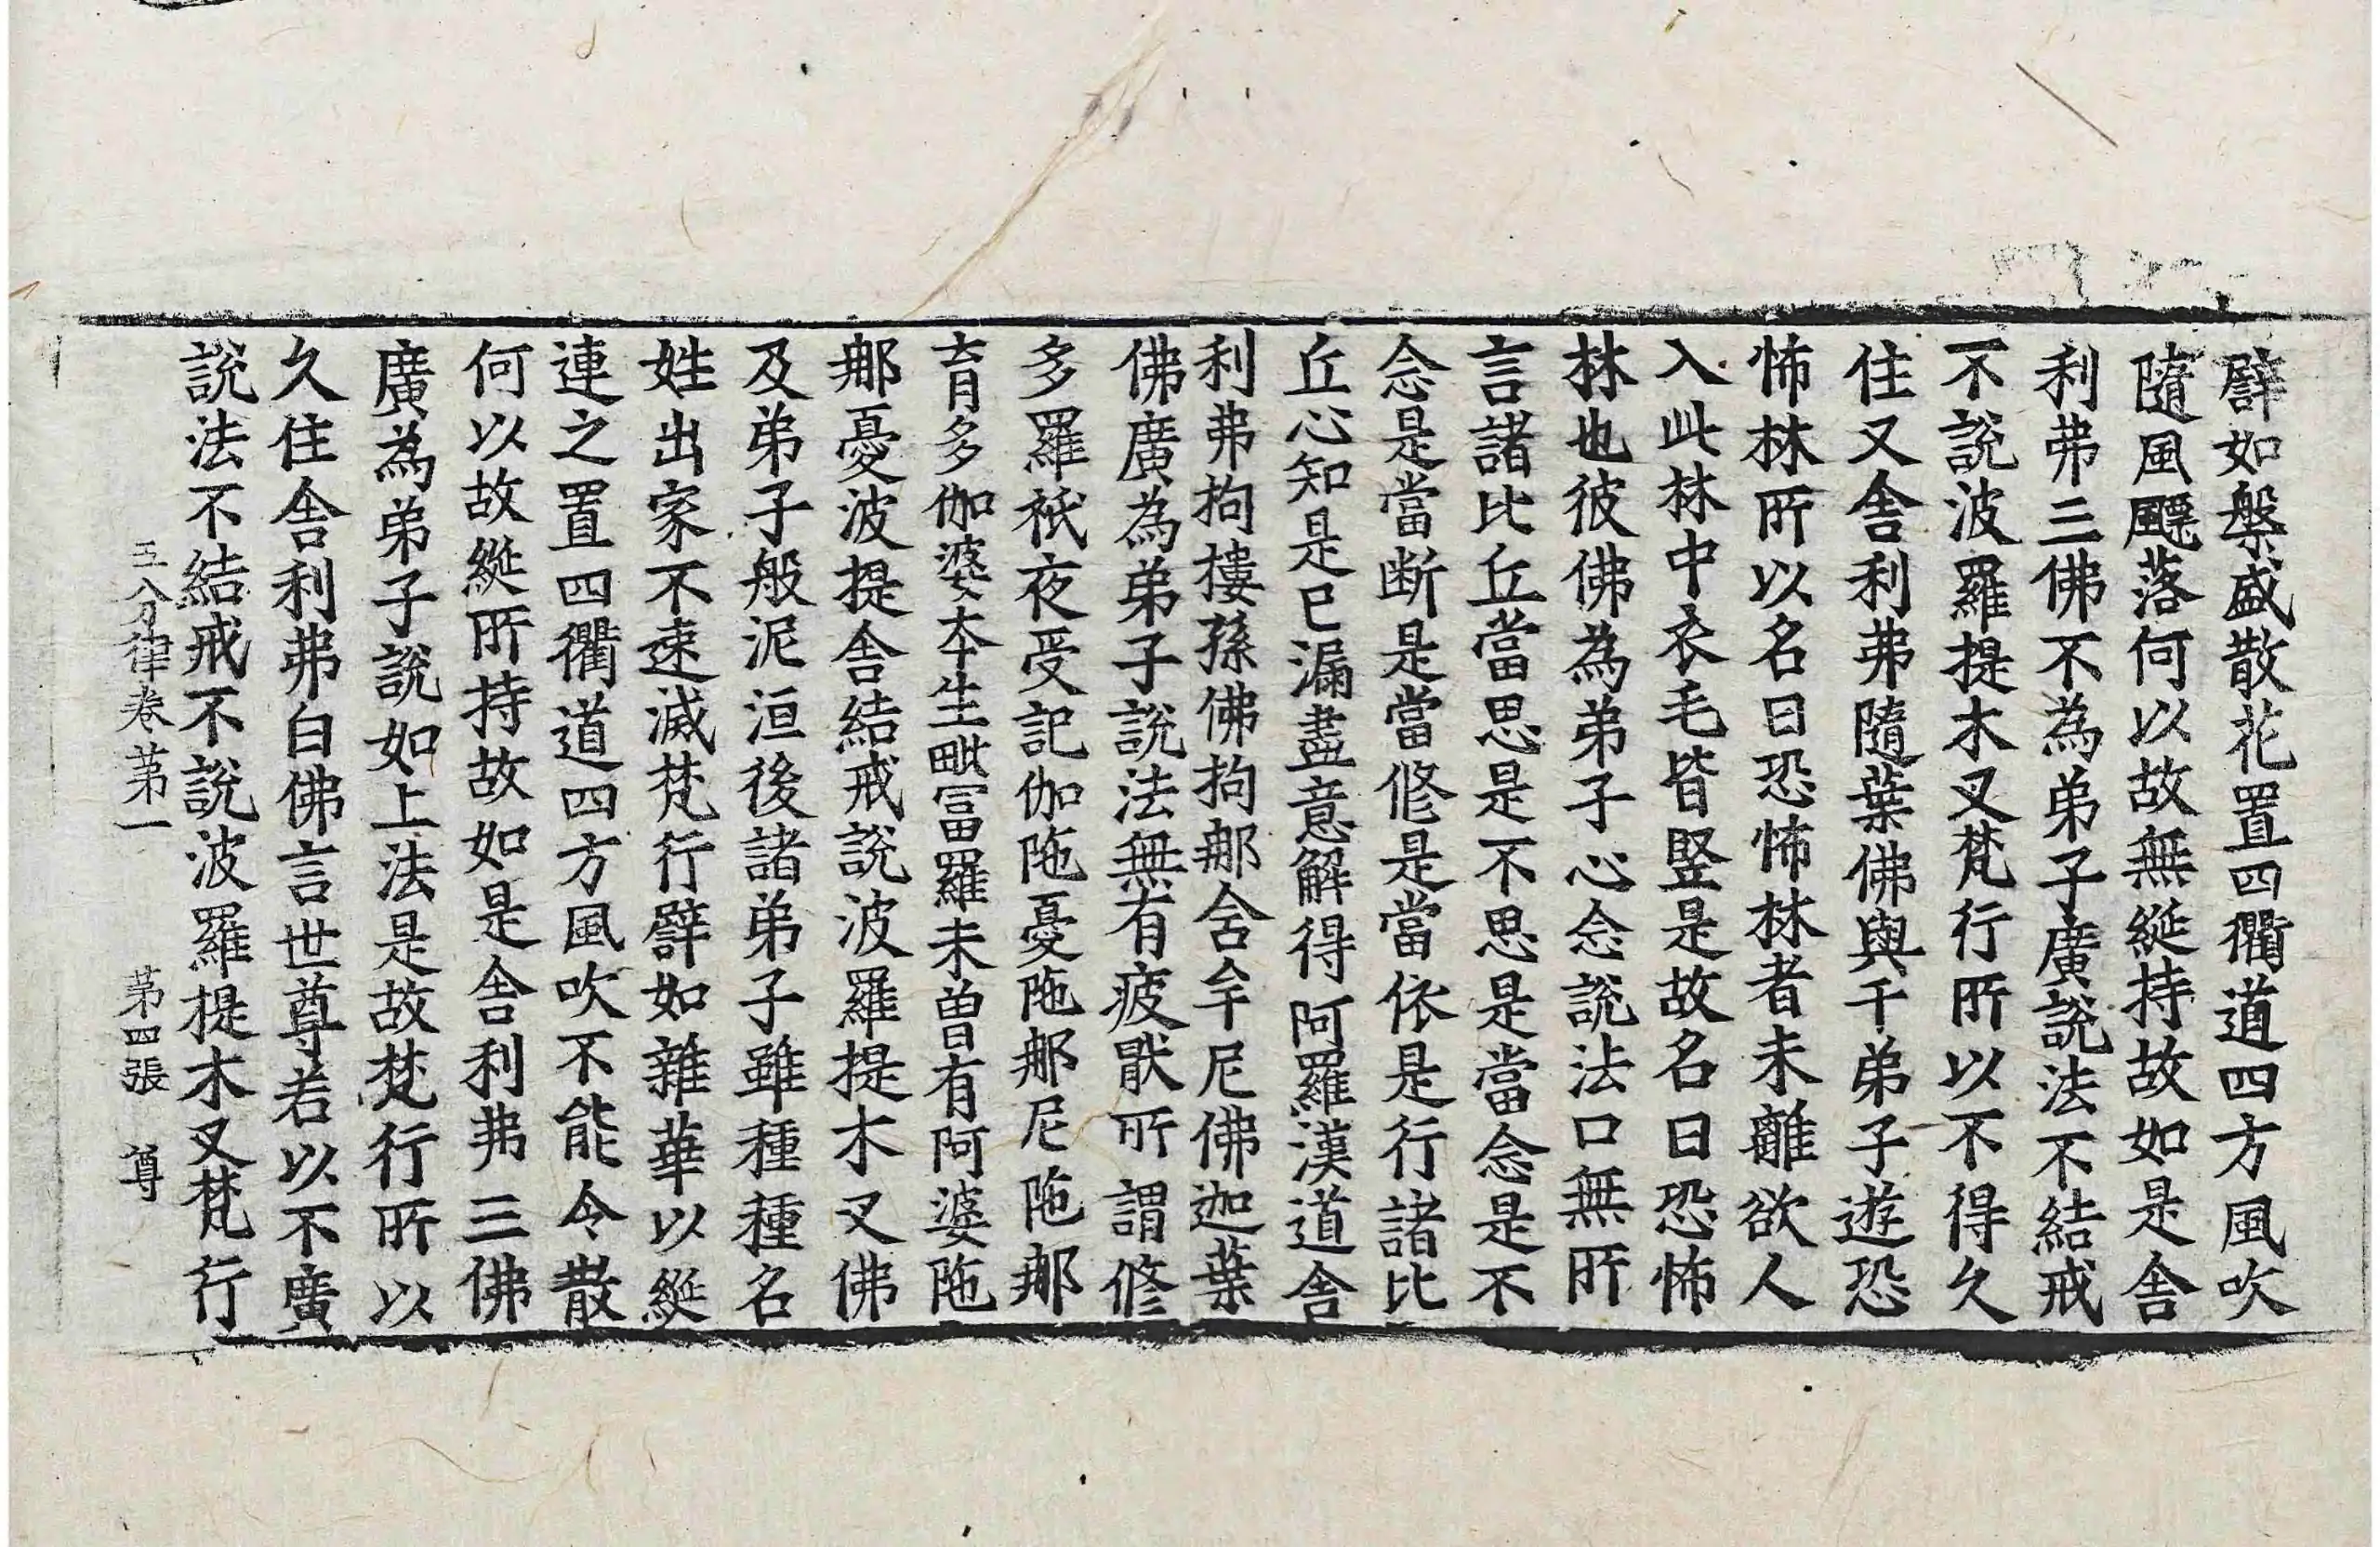 譬如槃盛散花置四衢道四方風吹
隨風飃落何以故無綖持故如是舎
利弗三佛不為弟子廣說法不結戒
不說波羅提木叉梵行所以不得久
住又舎利弗隨葉佛與千弟子遊恐
怖林所以名曰恐怖林者未離欲人
入此林中衣毛皆竪是故名曰恐怖
林也彼佛為弟子心念說法口無所
言諸比丘當思是不思是當念是不
念是當断是當修是當依是行諸比
丘心知是已漏盡意解得阿羅漢道舎
利弗拘樓孫佛拘那舎牟尼佛迦葉
佛廣為弟子說法無有疲猒所謂修
多羅祇夜受記伽陁憂陁那尼陁那
育多伽婆本生毗富羅未曽有阿婆陁
那憂波提舎結戒說波羅提木叉佛
及弟子般泥洹後諸弟子雖種種名
姓出家不速滅梵行譬如雜華以綖
連之置四衢道四方風吹不能令散
何以故綖所持故如是舎利弗三佛
廣為弟子說如上法是故梵行所以
久住舎利弗白佛言世尊若以不廣
說法不結戒不說波羅提木叉梵行
五分律卷苐一 苐四張 尊